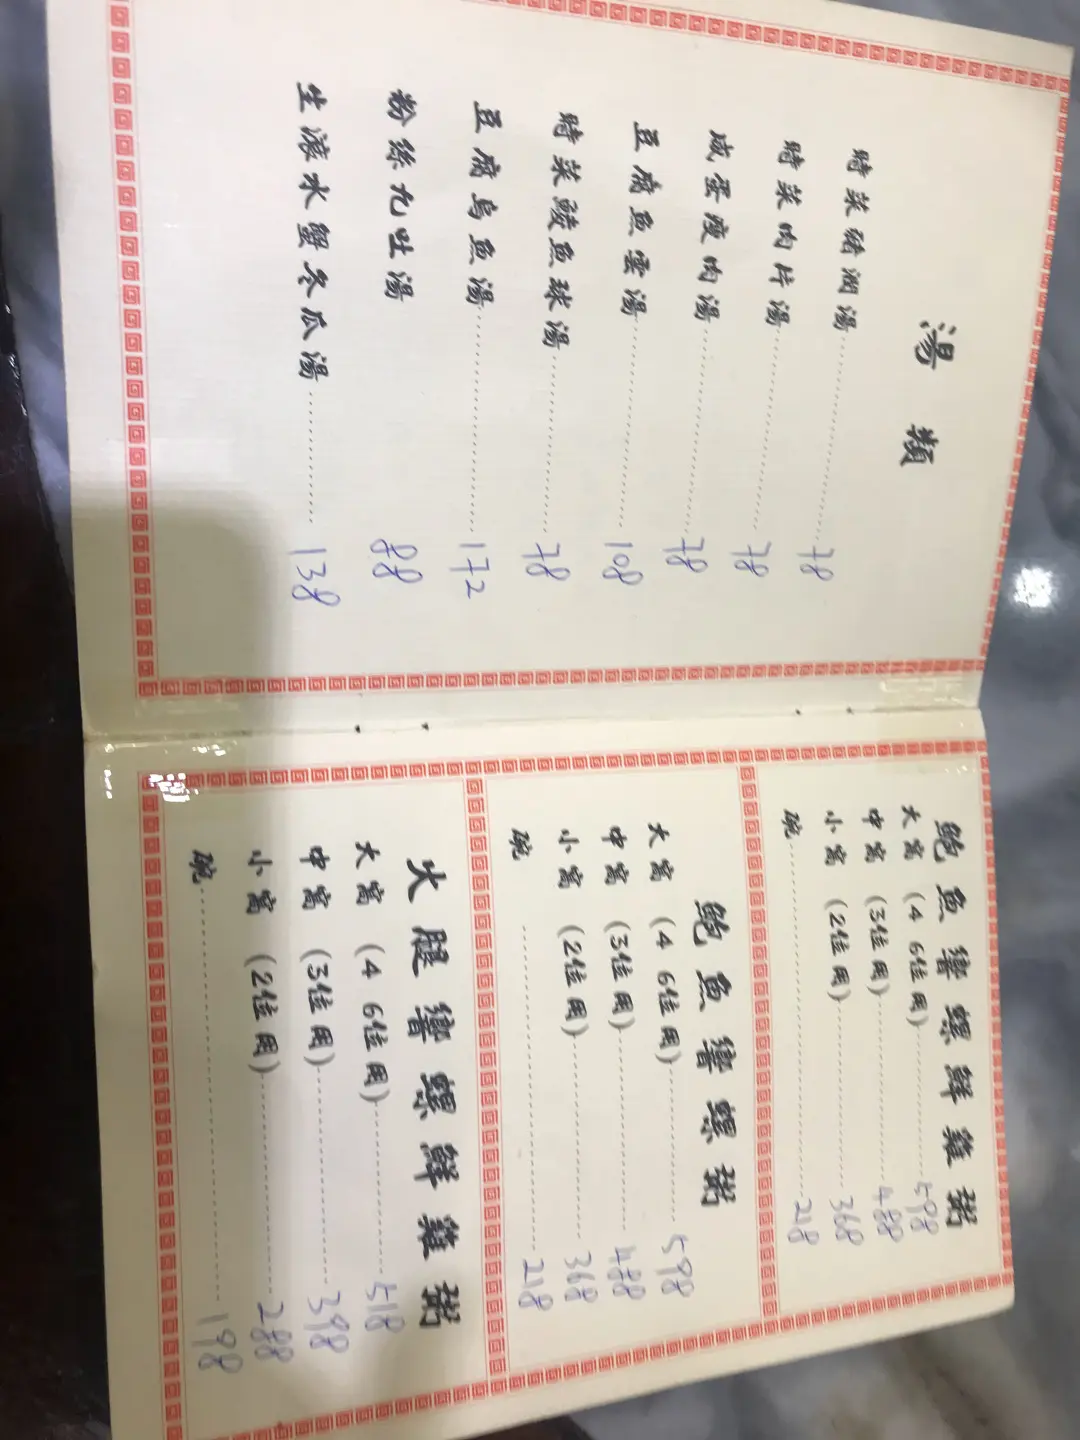 湯類
時菜豬潤湯 78
時菜肉片湯 78
咸蛋瘦肉湯 78
豆腐魚雲湯 108
時菜鯪魚球湯 78
豆腐烏魚湯 172
粉絲九吐湯 88
生滾水蟹冬瓜湯 138
鮑魚響螺鮮雞粥
大窩 (4 6位用) 598
中窩 (3位用) 488
小窩 (2位用) 368
碗 218
鮑魚響螺粥
大窩 (4 6位用) 598
中窩 (3位用) 488
小窩 (2位用) 368
碗 218
火腿響螺鮮雞粥
大窩 (4 6位用) 518
中窩 (3位用) 398
小窩 (2位用) 288
碗 198